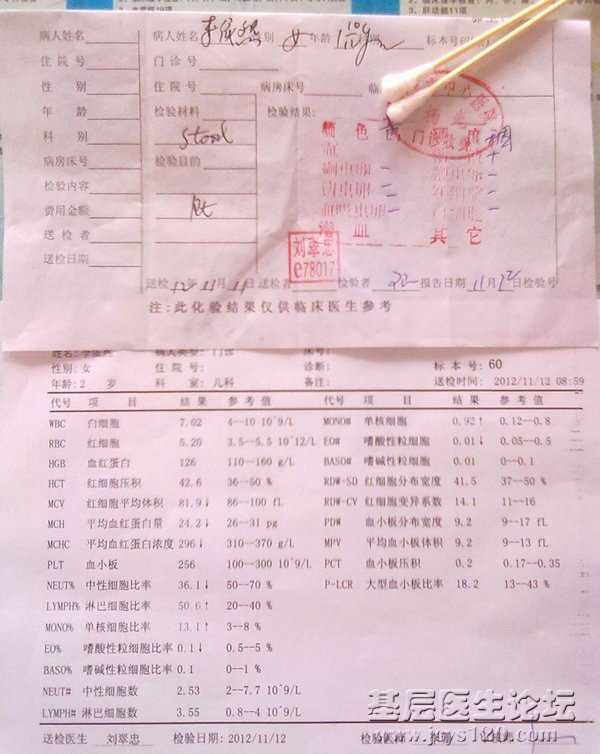 病人姓名 李 别 女 年龄 标本号
住院号 门诊号
性别 住院号 病房床号 临
年龄 检验材料 检验结果:
科别 Stool 颜色 黄
病房床号 检验目的
检验内容 Rt
费用金额
送检者 潜血 其它
送检日期 刘翠忠
e78017
送检 12年11月11日 送检者 检验者 报告日期 11月12日 检验号
注:此化验结果仅供临床医生参考
性别: 女 住院号: 诊断: 标本号: 60
年龄: 2 岁 科室: 儿科 备注: 送检时间: 2012/11/12 08:59
代号 项目 结果 参考值 代号 项目 结果 参考值
WBC 白细胞 7.02 4--10 10^9/L MONO# 单核细胞 0.92↑ 0.12--0.8
RBC 红细胞 5.20 3.5--5.5 10^12/L EO# 嗜酸性粒细胞 0.01↓ 0.05--0.5
HGB 血红蛋白 126 110--160 g/L BASO# 嗜碱性粒细胞 0.01 0--0.1
HCT 红细胞压积 42.6 36--50 % RDW-SD 红细胞分布宽度 41.5 37--50 %
MCV 红细胞平均体积 81.9↓ 86--100 fL RDW-CV 红细胞变异系数 14.1 11--16
MCH 平均血红蛋白量 24.2↓ 26--31 pg PDW 血小板分布宽度 9.2 9--17 fL
MCHC 平均血红蛋白浓度 296↓ 310--370 g/L MPV 平均血小板体积 9.2 9--13 fL
PLT 血小板 256 100--300 10^9/L PCT 血小板压积 0.2 0.17--0.35
NEUT% 中性细胞比率 36.1↓ 50--70 % P-LCR 大型血小板比率 18.2 13--43 %
LYMPH% 淋巴细胞比率 50.6↑ 20--40 %
MONO% 单核细胞比率 13.1↑ 3--8 %
EO% 嗜酸性粒细胞比率 0.1↓ 0.5--5 %
BASO% 嗜碱性粒细胞比率 0.1 0--1 %
NEUT# 中性细胞数 2.53 2--7.7 10^9/L
LYMPH# 淋巴细胞数 3.55 0.8--4 10^9/L
基层医生论坛
送检医生 刘翠忠 检验日期: 2012/11/12